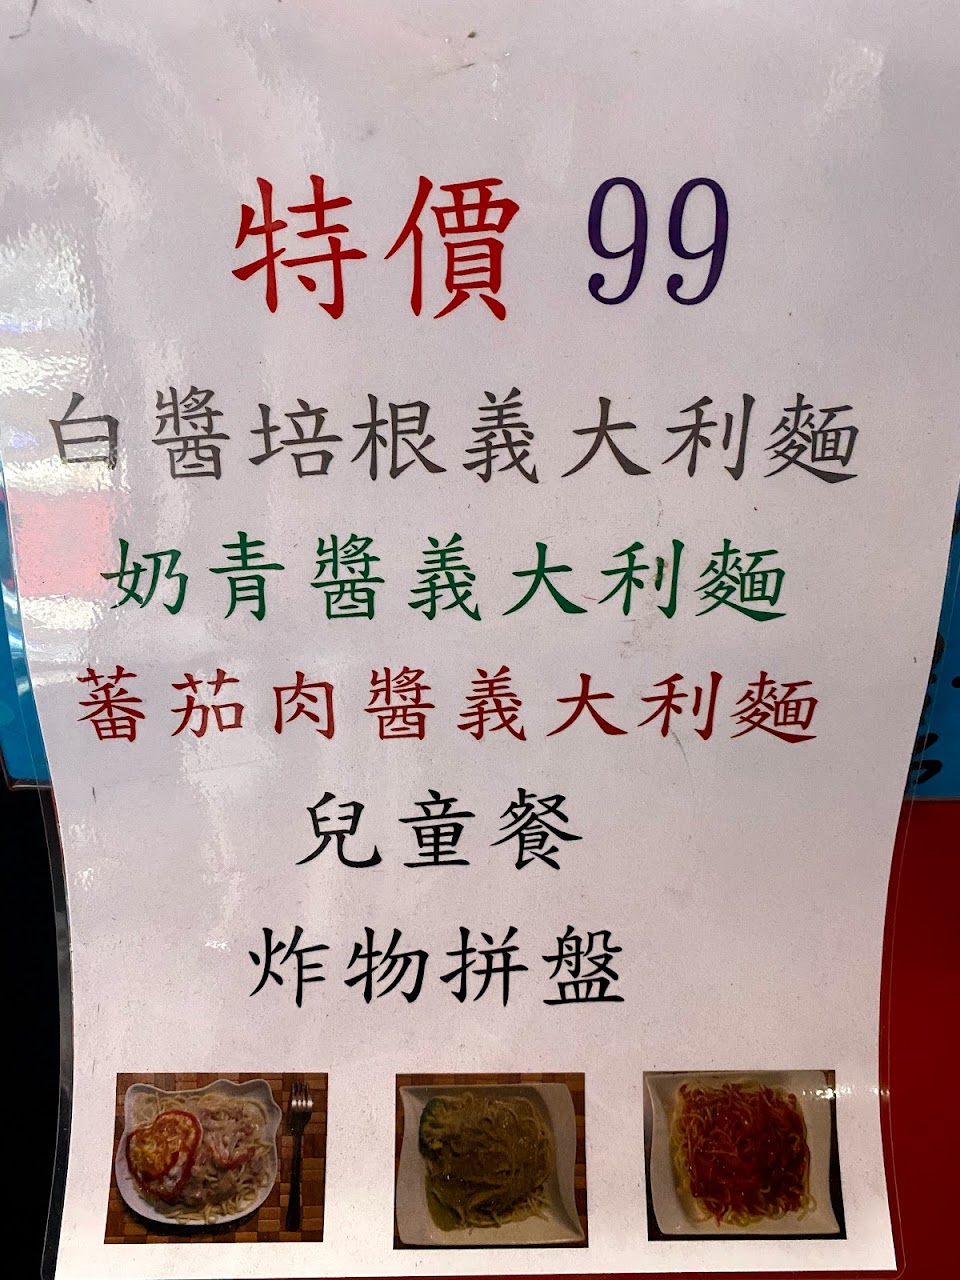 特價 99
白醬培根義大利麵
奶青醬義大利麵
蕃茄肉醬義大利麵
兒童餐
炸物拼盤